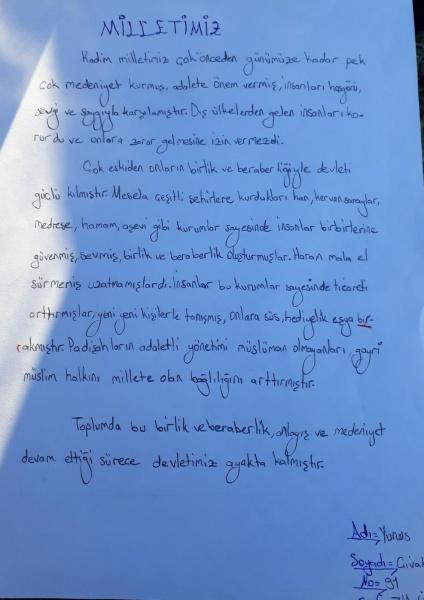 MİLLETİMİZ
Kadim milletimiz çok önceden günümüze kadar pek
çok medeniyet kurmuş, adalete önem vermiş, insanları hoşgörü,
sevgi ve saygıyla karşılamıştır. Dış ülkelerden gelen insanları ko-
rurdu ve onlara zarar gelmesine izin vermezdi.
Çok eskiden onların birlik ve beraberliğiyle devleti
güçlü kılmıştır. Mesela çeşitli şehirlere kurdukları han, kervansaraylar,
medrese, hamam, aşevi gibi kurumlar sayesinde insanlar birbirlerine
güvenmiş, sevmiş, birlik ve beraberlik oluşturmuşlar. Haram mala el
sürmemiş uzatmamışlardı. İnsanlar bu kurumlar sayesinde ticareti
arttırmışlar, yeni yeni kişilerle tanışmış, onlara süs, hediyelik eşya bır-
akmıştır. Padişahların adaletli yönetimi müslüman olmayanları, gayri
müslim halkını millete olan bağlılığını arttırmıştır.
Toplumda bu birlik ve beraberlik, anlayış ve medeniyet
devam ettiği sürece devletimiz ayakta kalmıştır.
Adı= Yunus
Soyadı= Civak
No= 91